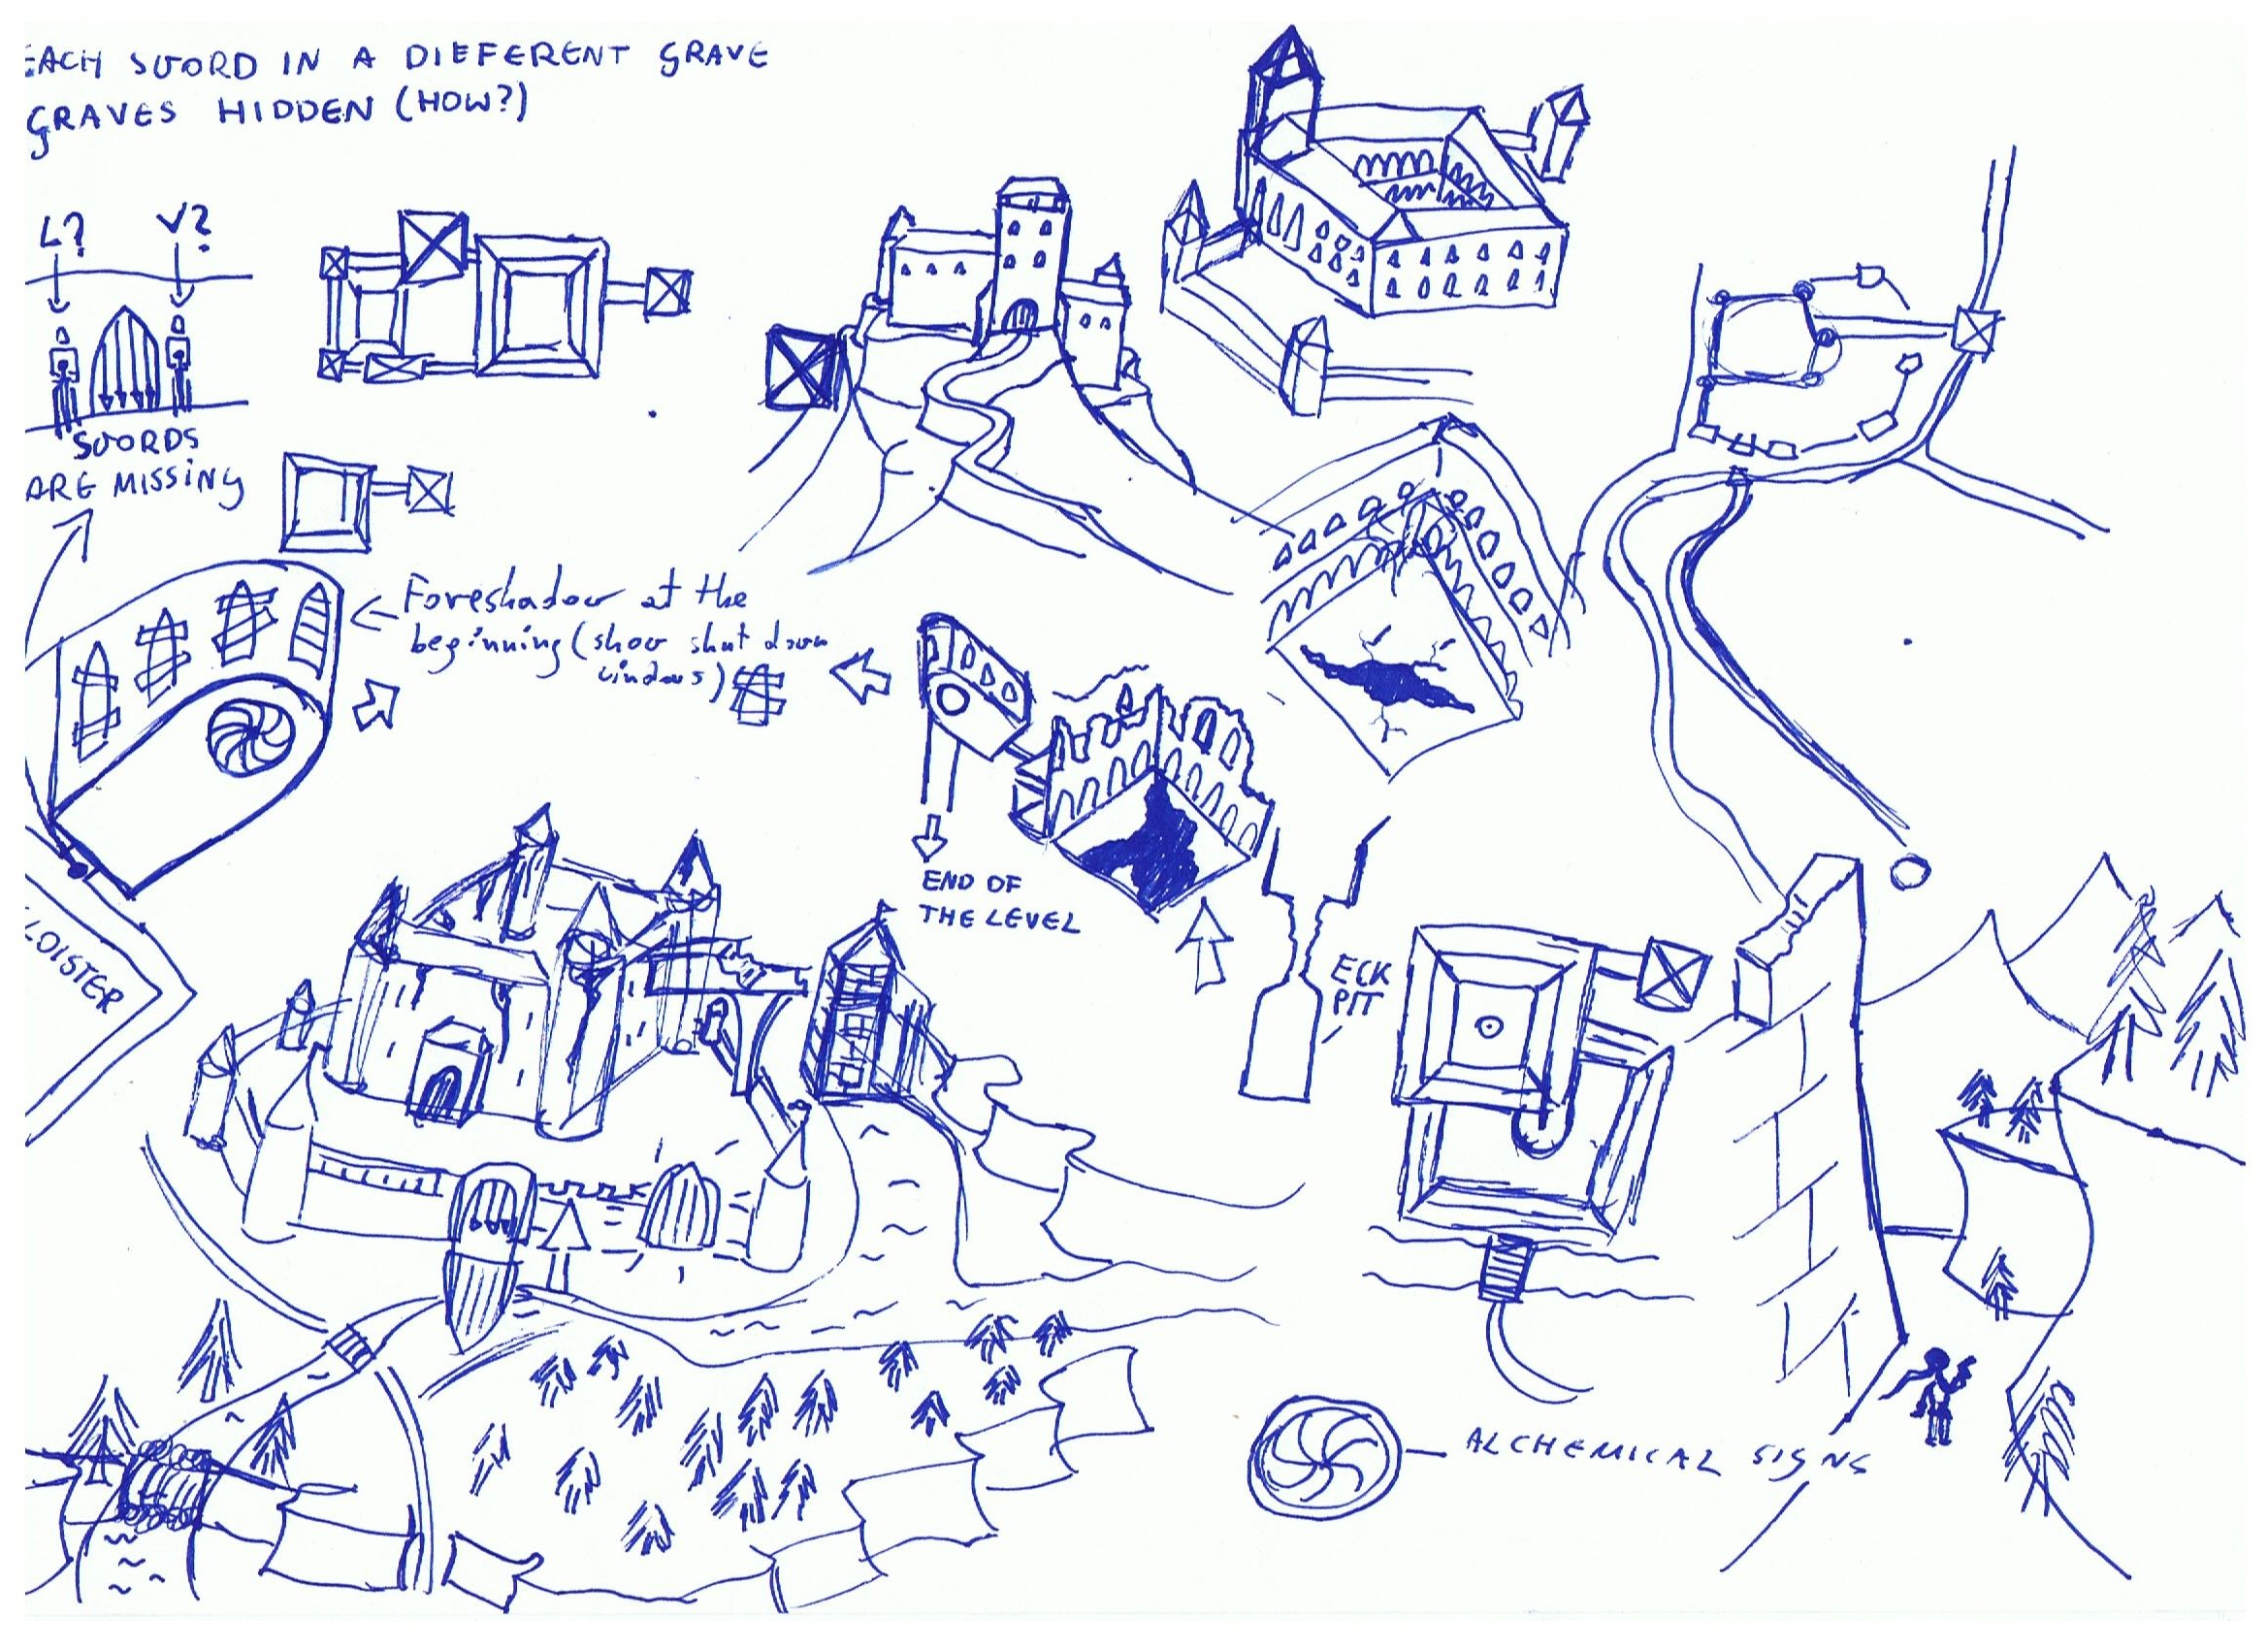 EACH SWORD IN A DIFFERENT GRAVE
GRAVES HIDDEN (HOW?)
L? V?
SWORDS
ARE MISSING
Foreshadow at the
beginning (show shut down
windows)
END OF
THE LEVEL
CLOISTER
ECK
PIT
ALCHEMICAL SIGNS